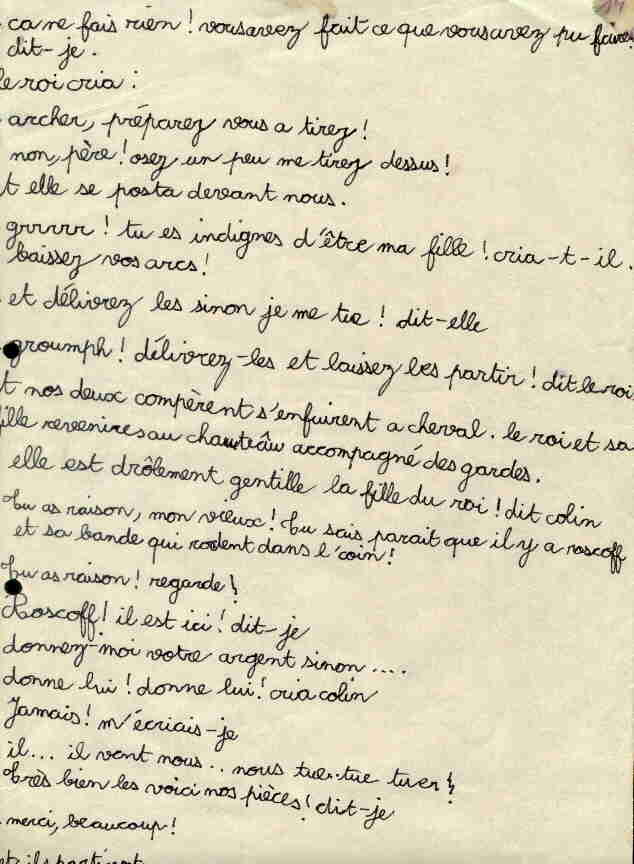 - ca ne fais rien ! vous avez fait ce que vous avez pu faire.
dit-je.
le roi cria :
- archer, préparez vous a tirez !
non, père ! osez un peu me tirez dessus !
t elle se posta devant nous.
grrrrr ! tu es indignes d'être ma fille ! cria-t-il.
baissez vos arcs !
- et délivrez les sinon je me tue ! dit-elle
groumph ! délivrez-les et laissez les partir ! dit le roi
t nos deux compèrent s'enfuirent a cheval. le roi et sa
fille revenires au chauteâu accompagné des gardes.
elle est drôlement gentille la fille du roi ! dit colin
tu as raison, mon vieux ! tu sais parait que il y a roscoff
et sa bande qui rodent dans l'coin !
tu as raison ! regarde !
Roscoff ! il est ici ! dit-je
donnez-moi votre argent sinon ....
donne lui ! donne lui ! cria colin
Jamais ! m'écriais-je
il... il vont nous .. nous tuer-tue tuer !
très bien les voici nos pièces ! dit-je
- merci, beaucoup !
et ils partirent